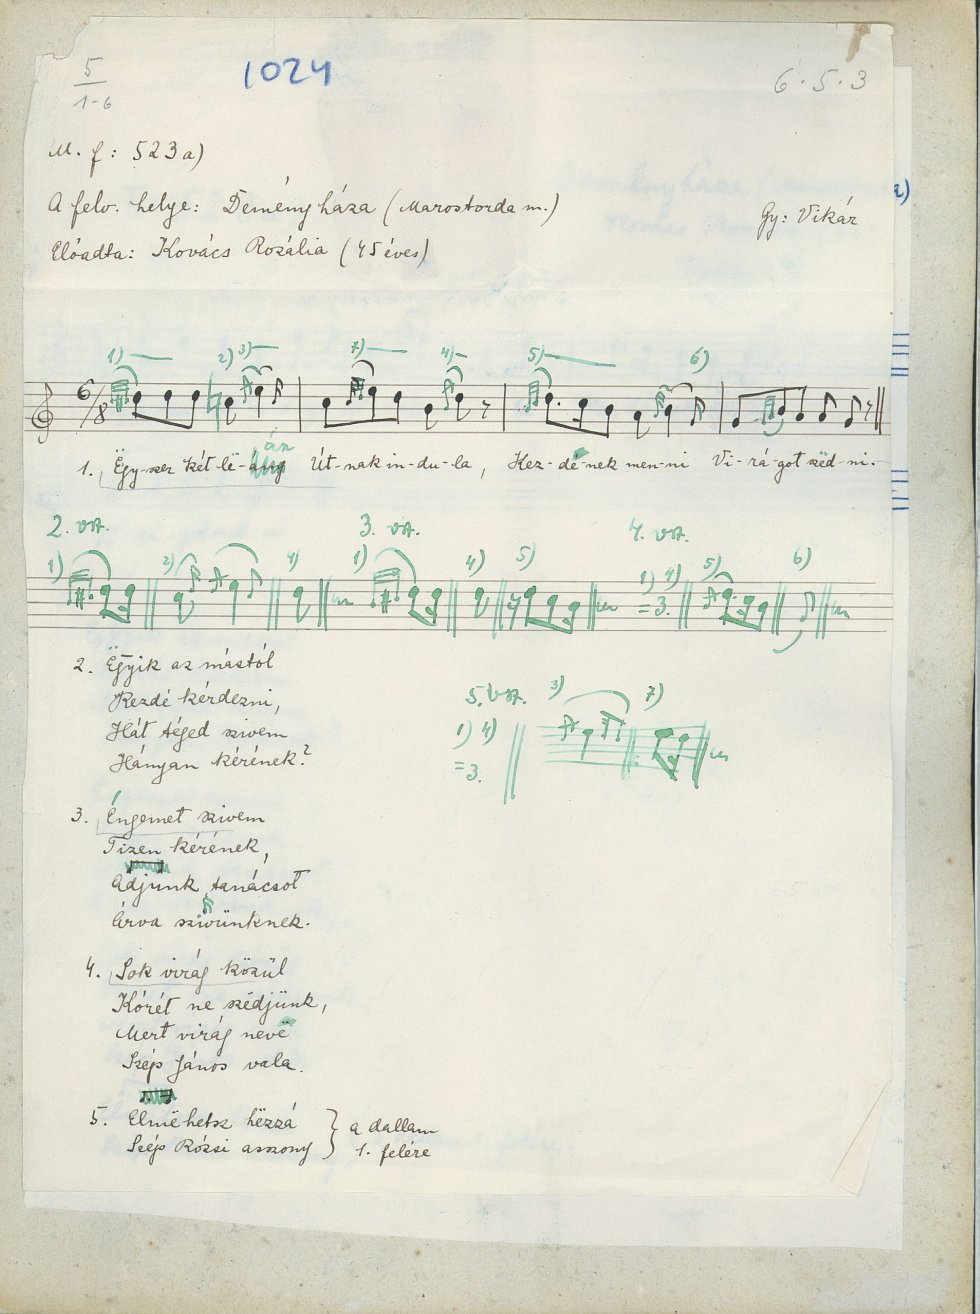 5
1-6
1024
6·5·3
M. f: 523a)
a)
A felv. helye: Deményháza (Marostorda m.)
Gy: Vikár
Előadta: Kovács Rozália (45 éves)
1) 2) 3) 7) 4) 5) 6)
6/8
1. Ëgy-szer két-lë-án Út-nak in-du-la, Kez-dé-nek men-ni Vi-rá-got szëd-ni.
2. vsz. 3. vsz. 4. vsz.
1) 2) 4) 1) 4) 5) 1) 4) = 3. 5) 6)
2. Ëgyik az mástól
Kezdé kérdezni,
Hát téged szivem
Hányan kérének?
5. vsz. 3) 7)
1) 4)
= 3.
3. Éngemet szivem
Tizen kérének,
Adjunk tanácsot
Árva szivünknek.
4. Sok virág közül
Kórét ne szëdjünk,
Mert virág nevë
Szép János vala.
5. Elmëhetsz hëzzá
Szép Rózsi asszony } a dallam
1. felére